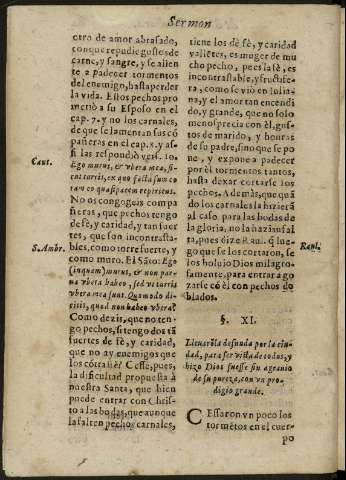 Sermon
otro de amor abrasado,
con que repudie gustos de
carne, y sangre, y se alien
te a padecer tormentos
del enemigo, hasta perder
la vida. Estos pechos pro
metiò a su Esposo en el
cap. 7. y no los carnales,
de que se lamentan sus cō
pañeras en el cap. 8. y as-
si las respondiò vers. 10.
Cant.
Ego murus, & vbera mea, si-
cut turris, ex quo facta sum co
ram eo quasi pacem reperiens.
No os congogeis compa
ñeras, que pechos tengo
de fè, y caridad, y tan fuer
tes, que son incontrasta-
S. Ambr.
bles, como torre fuerte, y
como muro. El Sāto: Ego
(inquam) murus, & non par-
ua vbera habeo, sed vt turris
vbera mea sunt. Quomodo di-
citis, quod non habeo vbera?
Como dezis, que no ten-
go pechos, si tengo dos tā
fuertes de fè, y caridad,
que no ay enemigos que
los cōtrasté? Cesse, pues,
la dificultad propuesta à
nuestra Santa, que bien
puede entrar con Chris-
to a las bodas, que aunque
la falten pechos carnales,
tiene los de fè, y caridad
valiētes, es muger de mu
cho pecho, pues la fè, es
incontrastable, y fructife-
ra, como se viò en Iulia-
na, y el amor tan encendi
do, y grande, que no solo
menosprecia con èl, gus-
tos de marido, y honras
de su padre, sino que se po
ne, y expone a padecer
por èl tormentos tantos,
hasta dexar cortarse los
pechos. A demàs, que quā
do los carnales la hizierā
al caso para las bodas de
la gloria, no la hazian fal
Raul.
ta, pues dize Raul. q̄ lue-
go que se los cortaron, se
los boluio Dios milagro-
samente, para entrar a go
zarse cō èl con pechos do
blados.
§. XI.
Lleuarōla desnuda por la ciu-
dad, para ser vista de todos, y
hizo Dios fuesse sin agrauio
de su pureza, con vn pro-
digio grande.
CEssaron vn poco los
tormētos en el cuer-
po